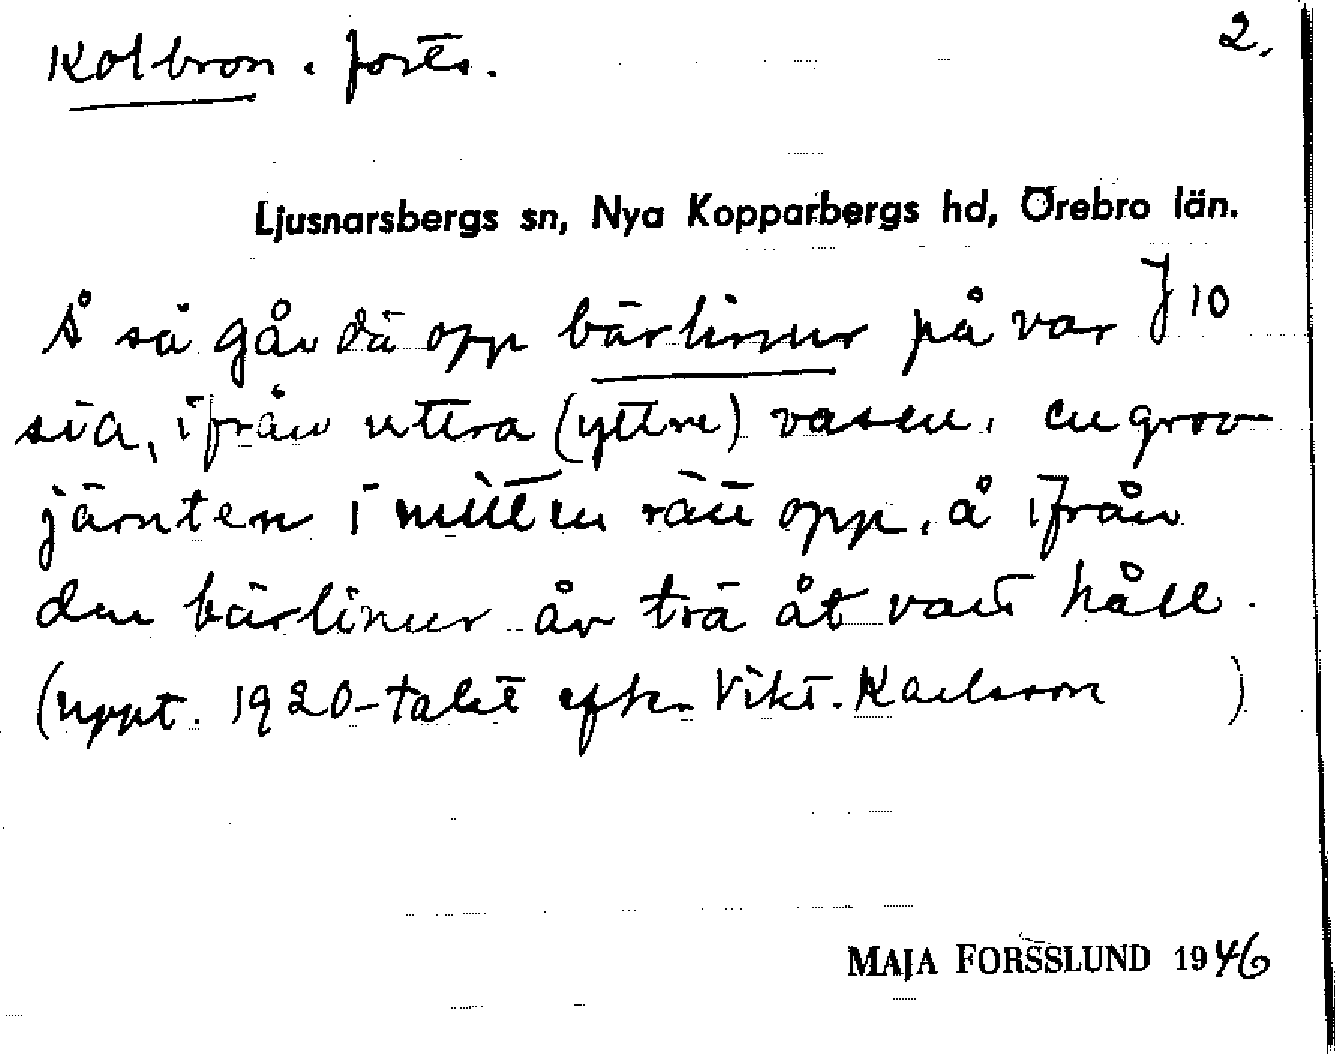 Kolbron. forts. 2.
Ljusnarsbergs sn, Nya Kopparbergs hd, Örebro län.
Å så går dä opp bärlinur på var J 10
sia, ifrån uttra (yttre) vasen. en grov
järnten i mitten rätt opp, å ifrån
den bärlinur åv trä åt vart håll.
(uppt. 1920-talet efter Vikt. Karlsson )
MAJA FORSSLUND 1946